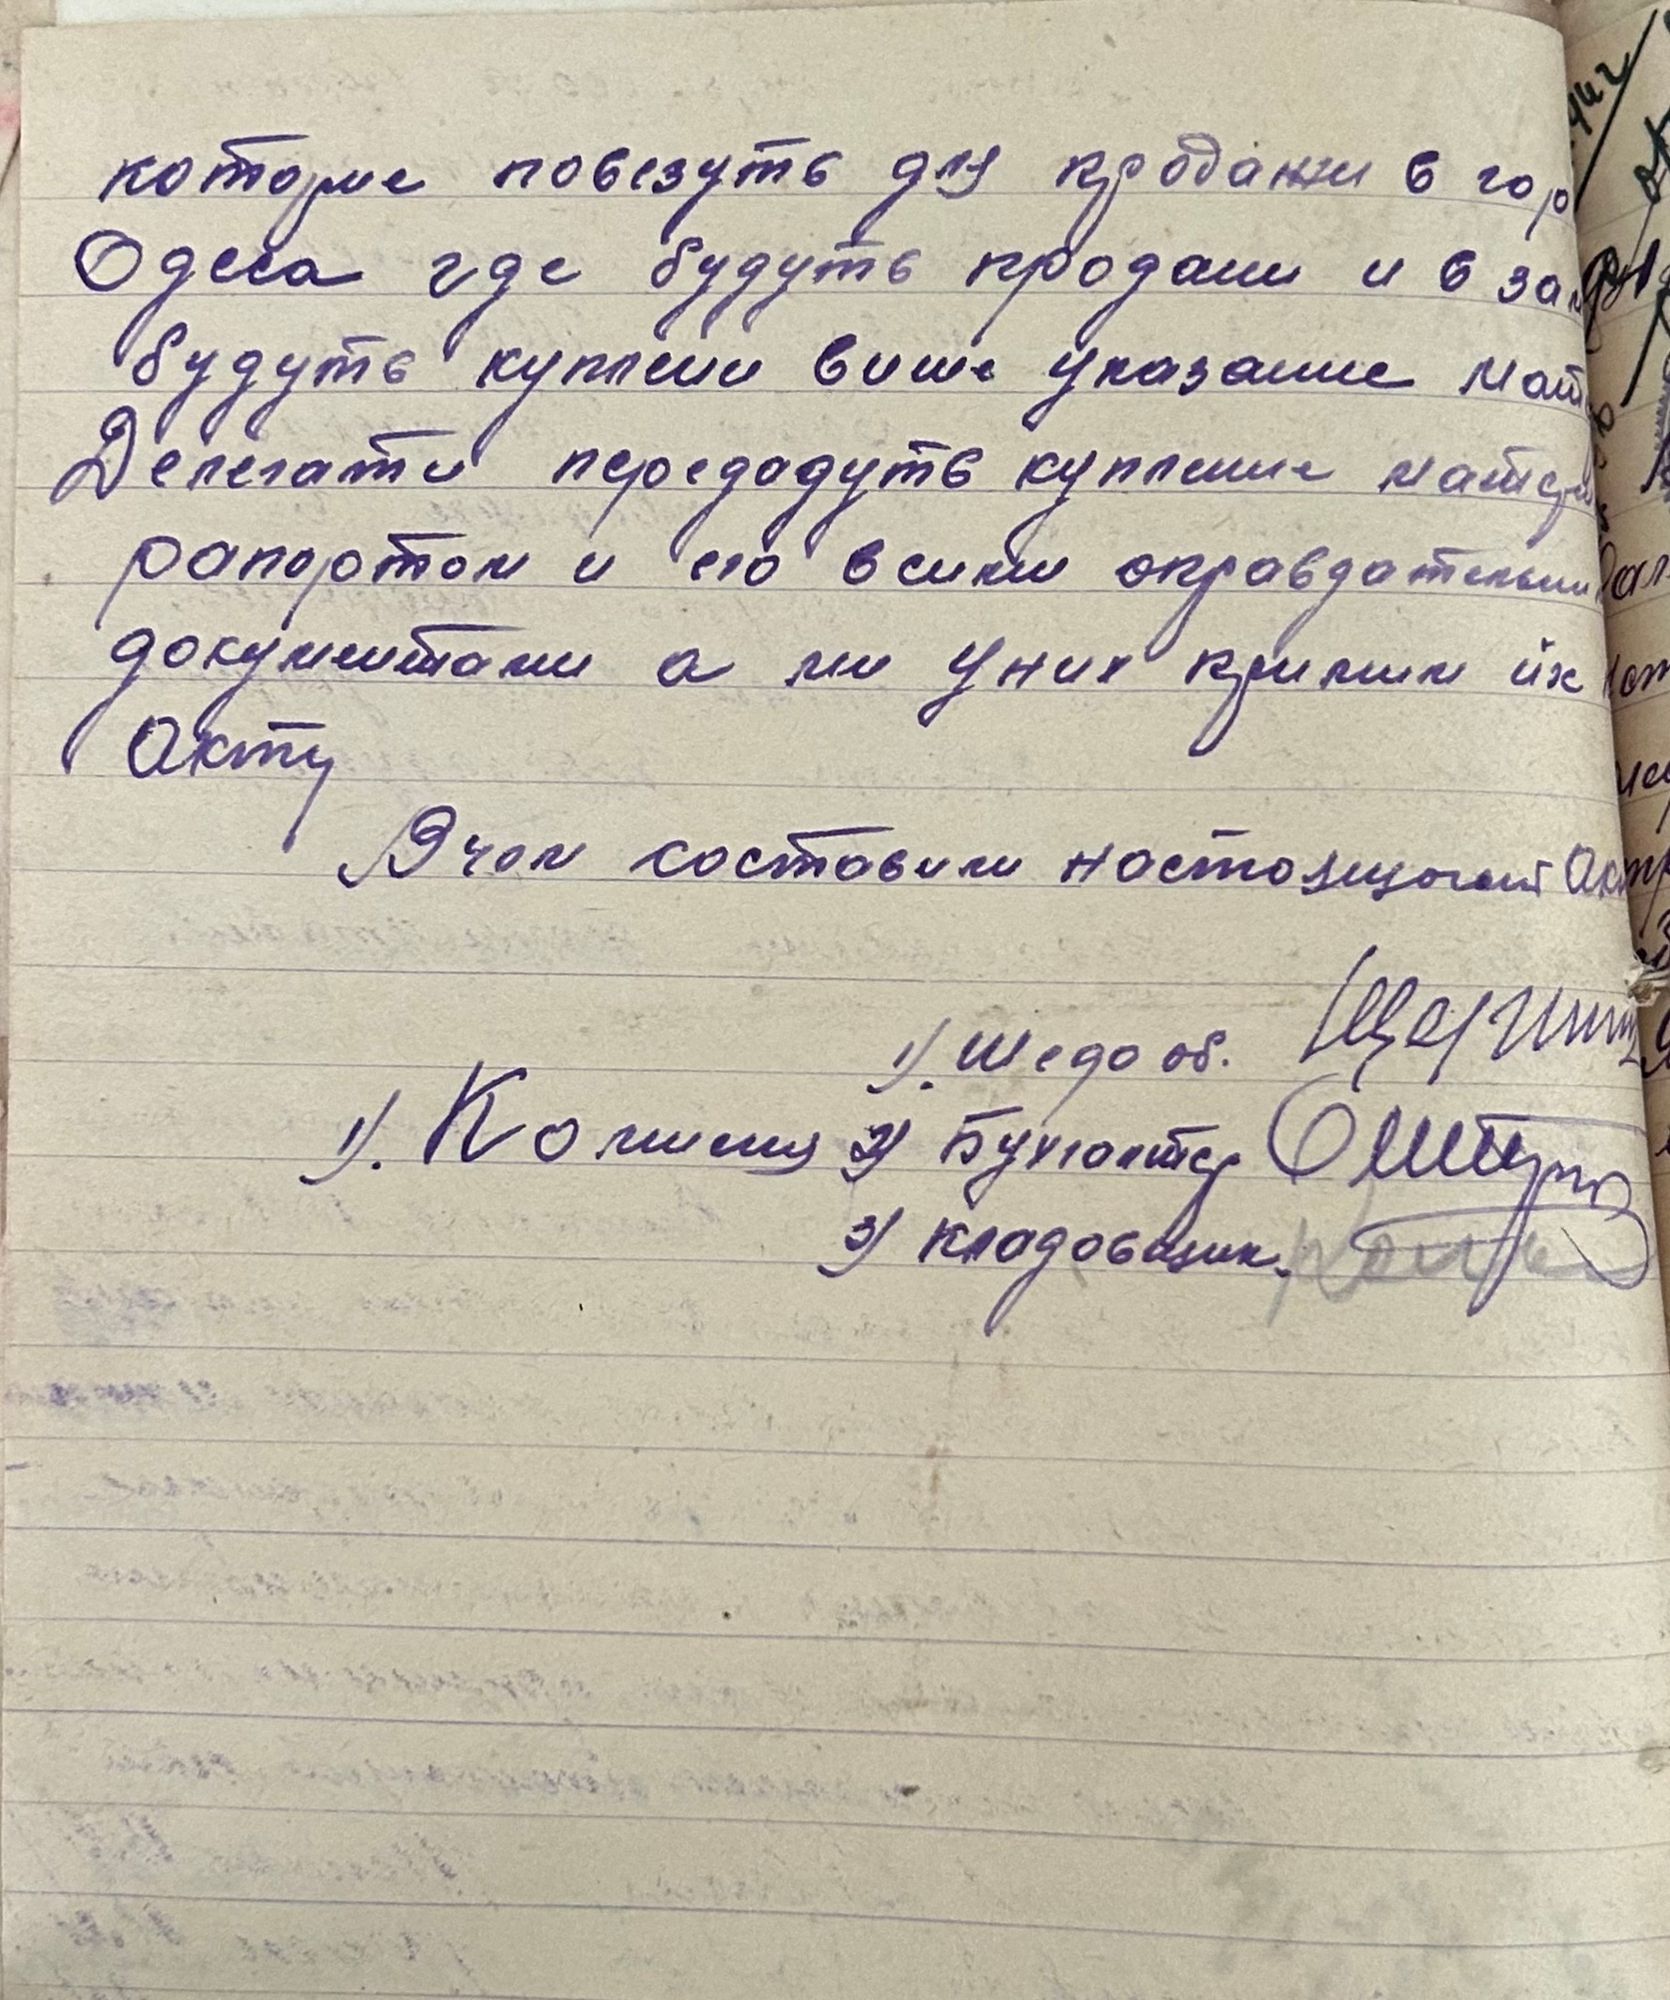 которие повезуть для продажи в гор
Одеса где будуть продани и в зам
будуть куплени више указание мат
Делегати передадуть купление матери
рапортом и его всими оправдательни
документами а ми у них примим их
Акту
В чом составили настоящогий Акт
1). Шедо об.
1). Комисия 2) Бухгалтер
3) Кладовщик.